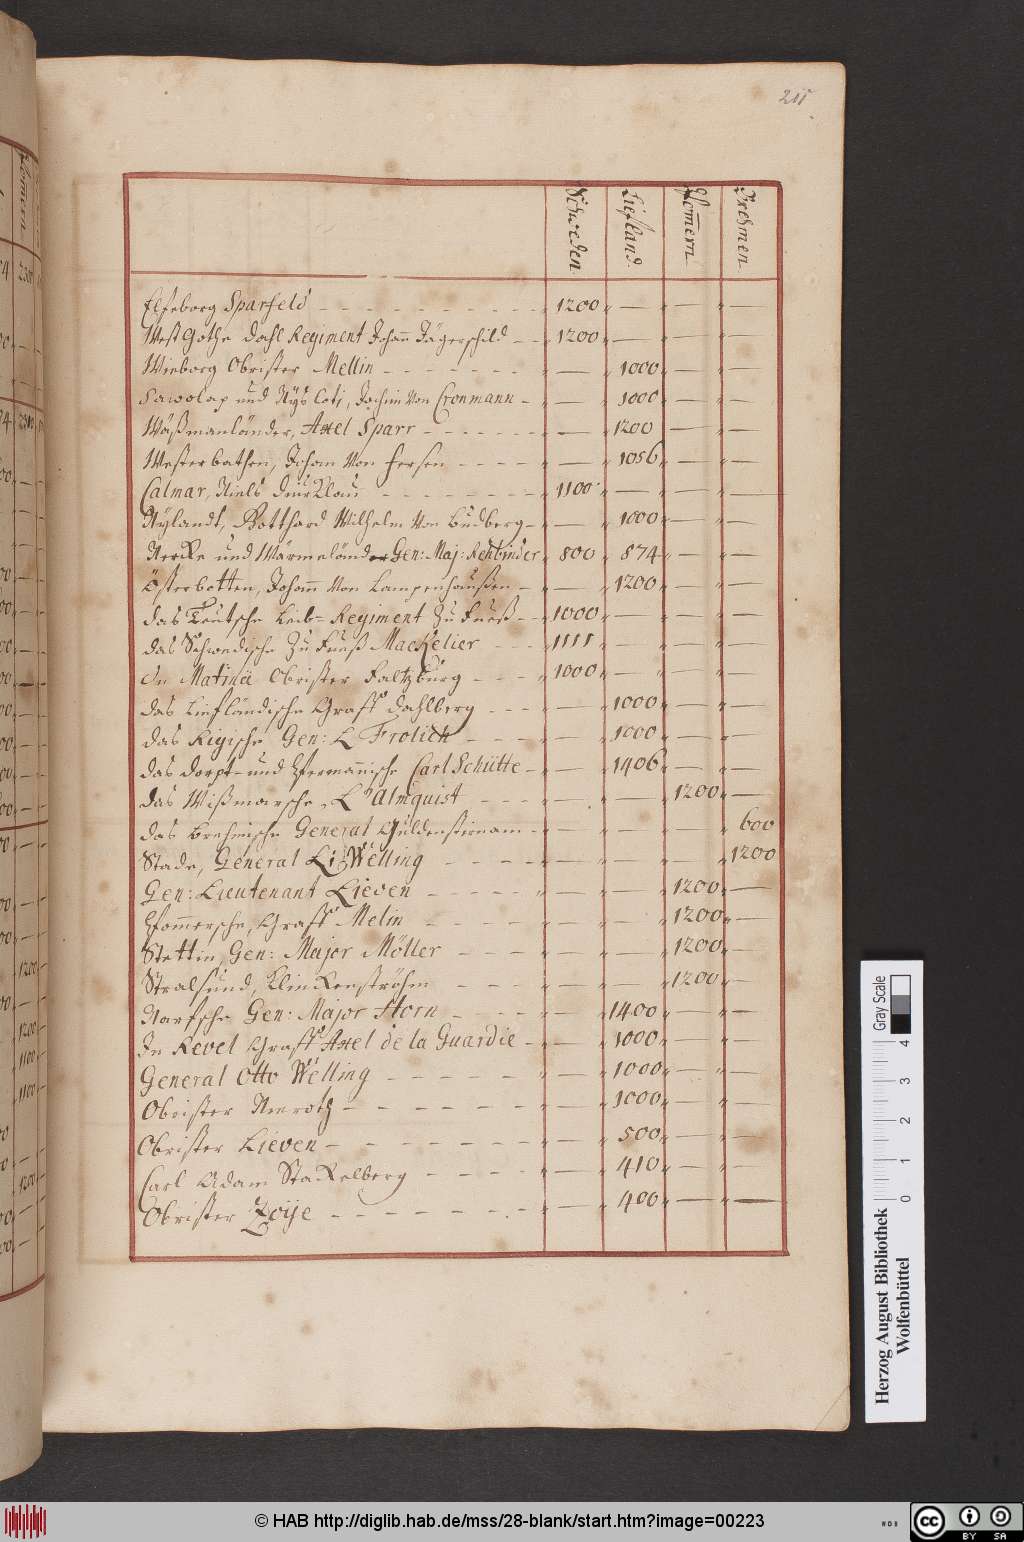 211
Schweden Liefland Pom̄ern Brehmen
Elseborg Sparfeld - - - - - - - 1200 " — " — " —
West Gothe Dahl Regiment Johan̄ Jägerschild - - 1200 " — " — " —
Wieborg Obrister Mellin - - - - - - " — " 1000 " — " —
Sawolax und Nyslott, Jochim von Cronmann - " — " 1000 " — " —
Wäßmanländer, Axel Sparr - - - - - " — " 1200 " — " —
Westerbothen, Johan von Fersen - - - - " — " 1056 " — " —
Calmar, Niels - - - - - - 1100 " — " — " —
Nylandt, Gotthard Wilhelm von Budberg - " — " 1000 " — " —
Nercke und Wärmeländer Gen: Maj: Rehbinder " 800 " 874 " — " —
Österbotten, Johan̄ von Campenhaußen - " — " 1200 " — " —
das Teutsche Leib-Regiment zu Fueß - - 1000 " — " — " —
das Schwedische zu Fueß Mackelier - - - 1111 " — " — " —
Obrister Faltzburg - - - 1000 " — " — " —
das Liefländische Graff Dahlberg - - - " — " 1000 " — " —
das Rigische Gen: L Frolich - - - - " — " 1000 " — " —
das Dorpt- und Permanische Carl Schütte - " — " 1406 " — " —
das Wißmarsche, L Almquist - - - " — " — " 1200 " —
das Brehmische General Guldenstirnam - " — " — " — " 600
Stade, General Li: Welling - - - - " — " — " — " 1200
Gen: Lieutenant Lieven - - - - - " — " — " 1200 " —
Pom̄ersche, Graff Melin - - - - " — " — " 1200 " —
Stettin, Gen: Major Möller - - - - " — " — " 1200 " —
Stralsund, Klinckenströhm - - - - " — " — " 1200 " —
Narfsche Gen: Major Horn - - - - " — " 1400 " — " —
In Revel Graff Axel de la Guardie - - " — " 1000 " — " —
General Otto Welling - - - - - " — " 1000 " — " —
Obrister Nieroth - - - - - - " — " 1000 " — " —
Obrister Lieven - - - - - - " — " 500 " — " —
Carl Adam Stackelberg - - - - " — " 410 " — " —
Obrister Zöije - - - - - - " — " 400 " — " —
Herzog August Bibliothek
Wolfenbüttel
0 1 2 3 4
Gray Scale
© HAB http://diglib.hab.de/mss/28-blank/start.htm?image=00223
WDB
cc BY SA